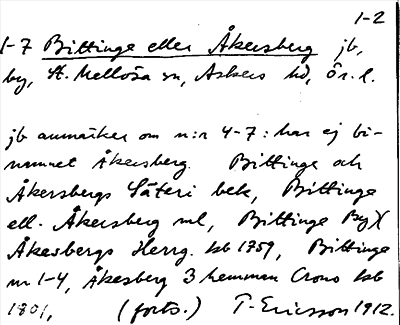 1-2
1-7 Bittinge eller Åkersberg jb,
by, St. Mellösa sn, Askers hd, Ör. l.
jb anmärker om n:r 4-7: har ej bi-
namnet Åkersberg. Bittinge och
Åkersbergs Säteri bek, Bittinge
ell. Åkersberg ml, Bittinge By)(
Åkesbergs Herrg. kb 1759, Bittinge
nr 1-4, Åkesberg 3 hemman Crono kb
1801, (forts.) T. Ericsson 1912.